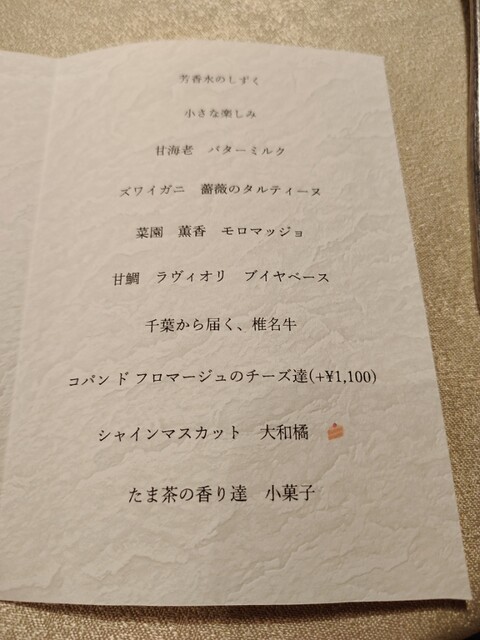 芳香水のしずく
小さな楽しみ
甘海老　バターミルク
ズワイガニ　薔薇のタルティーヌ
菜園　薫香　モロマッジョ
甘鯛　ラヴィオリ　ブイヤベース
千葉から届く、椎名牛
コバンド フロマージュのチーズ達(+¥1,100)
シャインマスカット　大和橘
たま茶の香り達　小菓子